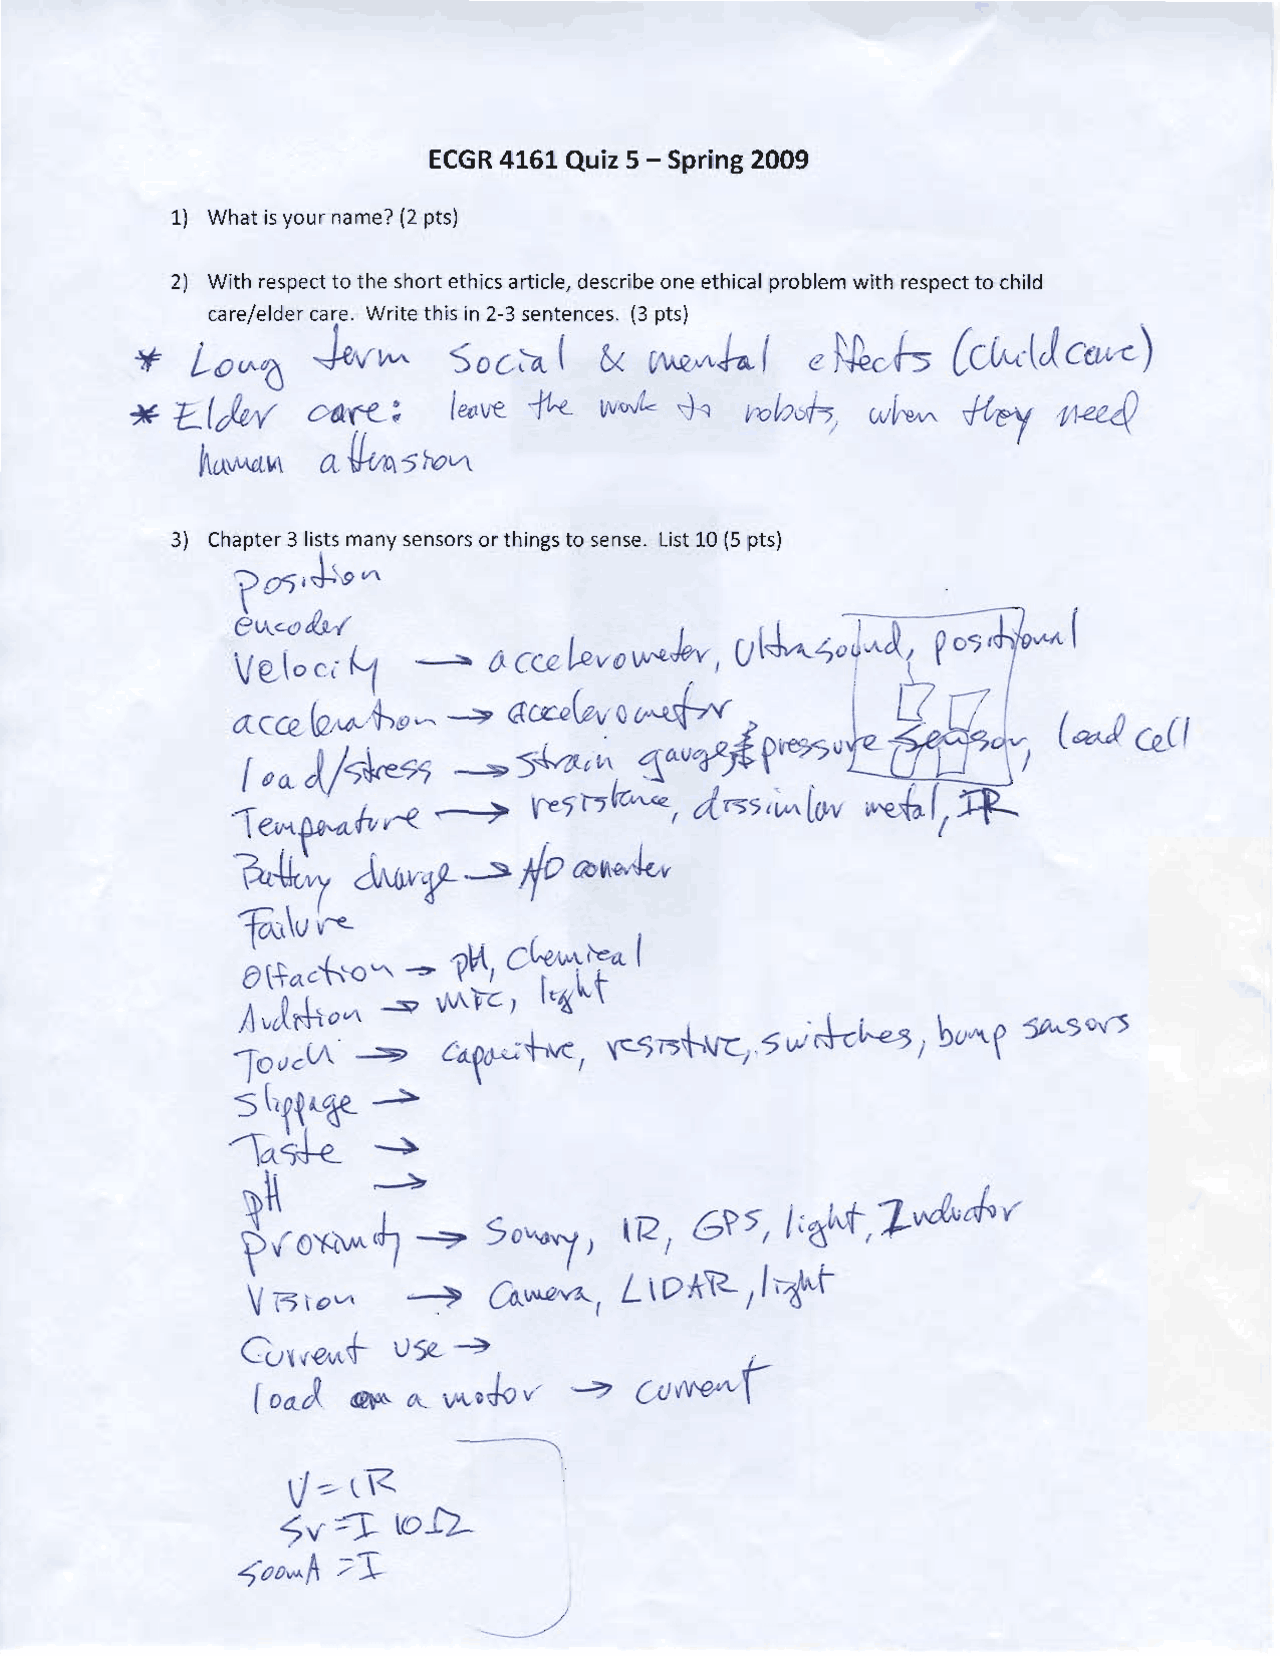 ECGR 4161 Quiz 5 – Spring 2009
1) What is your name? (2 pts)
2) With respect to the short ethics article, describe one ethical problem with respect to child
care/elder care. Write this in 2-3 sentences. (3 pts)
* Long term social & mental effects (childcare)
* Elder care: leave the work to robots, when they need
human attension
3) Chapter 3 lists many sensors or things to sense. List 10 (5 pts)
Position
encoder
Velocity → accelerometer, Ultrasound, positional
acceleration → accelerometor
load/stress → strain gauges pressure sensor, load cell
Temperature → resistance, dissimilar metal, IR
Battery charge → A/D converter
Failure
Olfaction → pH, Chemical
Audition → MIC, light
Touch → Capacitive, resistive, switches, bump sensors
Slippage →
Taste →
pH →
Proximity → Sonary, IR, GPS, light, Inductor
Vision → Camera, LIDAR, light
Current use →
load on a motor → current
V = IR
5v = I 10Ω
500mA = I